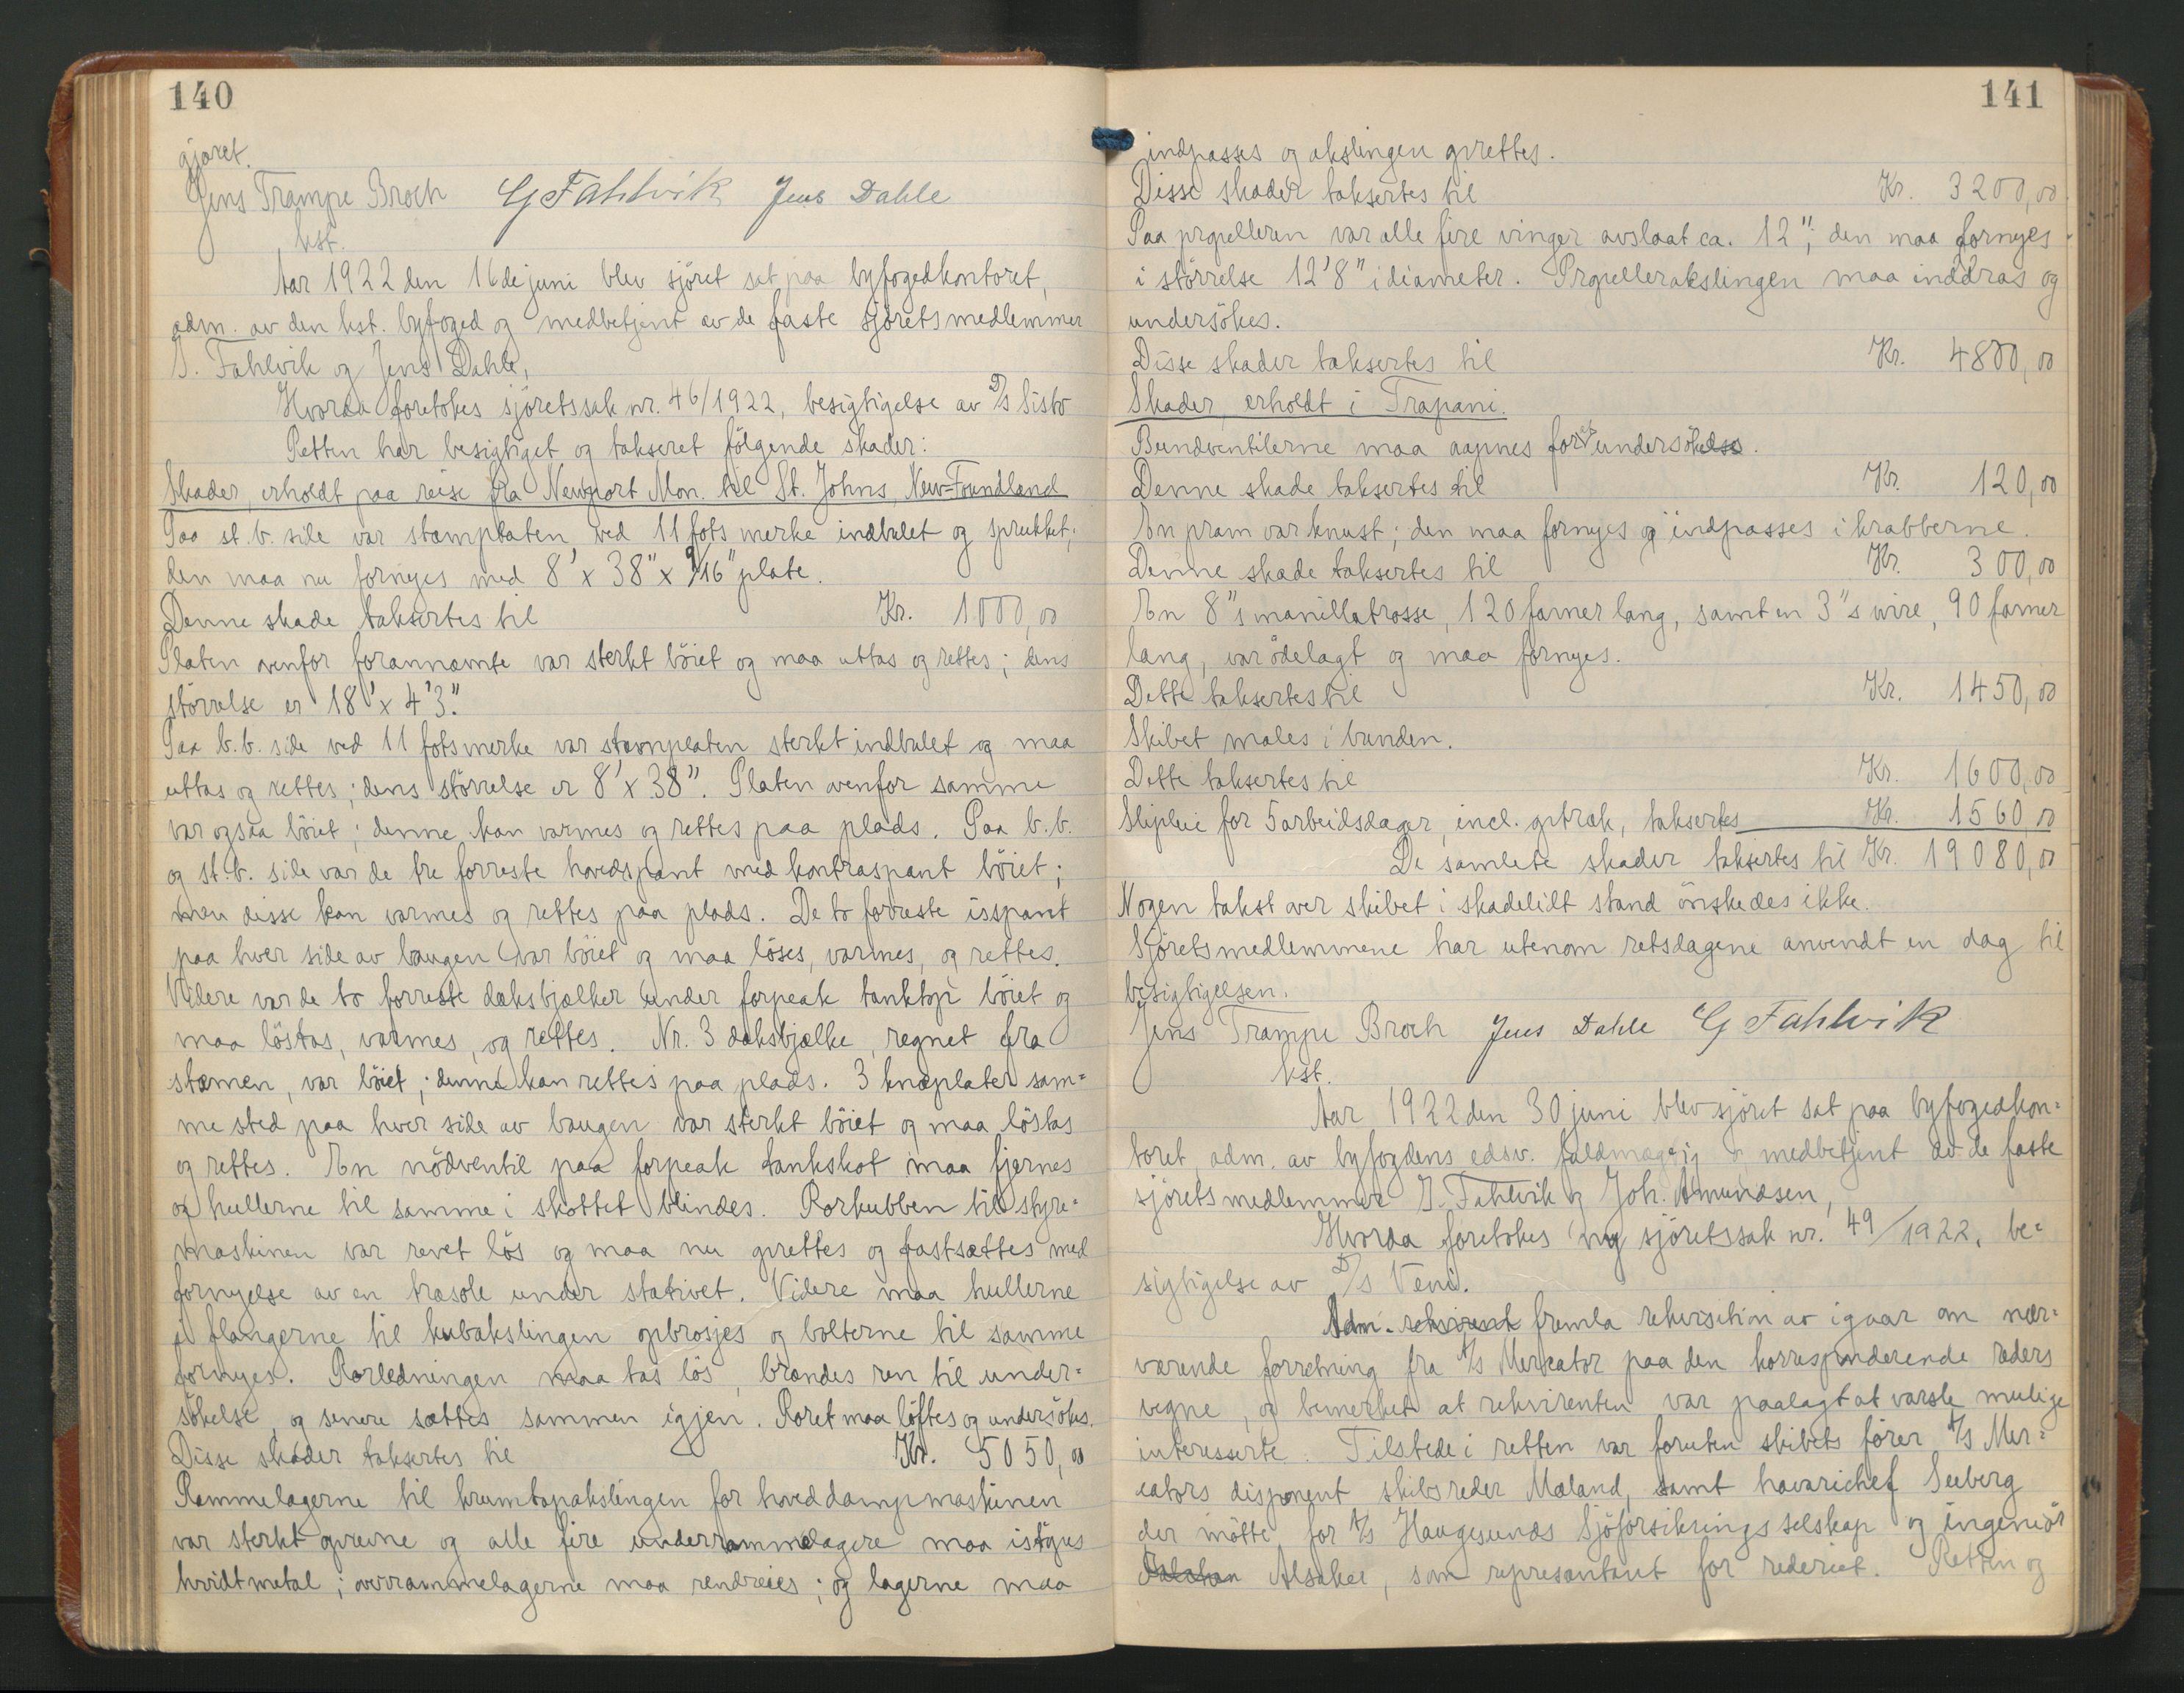 140
gjøret.
Jens Trampe Broch G Fahlvik Jens Dahle
kst.
Aar 1922 den 16de juni blev sjöret sat paa byfogedkontoret,
adm. av den kst. byfoged og medbetjent av de faste sjöretsmedlemmer
G. Fahlvik og Jens Dahle,
Hvorda foretokes sjöretssak nr. 46/1922, besigtigelse av D/S Sisto
Retten har besigtiget og takseret fölgende skader:
Skader, erholdt paa reise fra Newport Mon. til St. Johns, New=Foundland
Paa st.b. side var stævnplaten ved 11 fots merke indbulet og sprukket;
den maa nu fornyes med 8' x 38" x 9/16" plate.
Denne skade taksertes til Kr. 1000,00
Platen ovenfor forannævnte var sterkt böiet og maa uttas og rettes; dens
störrelse er 18' x 4'3".
Paa b.b. side ved 11 fotsmerke var stævnplaten sterkt indbulet og maa
uttas og rettes; dens störrelse er 8' x 38". Platen ovenfor samme
var ogsaa böiet; denne kan varmes og rettes paa plads. Paa b.b.
og st.b. side var de tre forreste hovedspant med kontraspant böiet;
men disse kan varmes og rettes paa plads. De to forreste isspant
paa hver side av baugen var böiet og maa löses, varmes, og rettes.
Videre var de to forreste dæksbjælker under forpeak tanktop böiet og
maa löstas, varmes, og rettes. Nr. 3 dæksbjælke, regnet fra
stævnen, var böiet; denne kan rettes paa plads. 3 knæplater sam=
me sted paa hver side av baugen var sterkt böiet og maa löstas
og rettes. En nödventil paa forpeak tankskot maa fjernes
og hullerne til samme i skottet blindes. Rorkubben til styre=
maskinen var revet lös og maa nu oprettes og fastsættes med
fornyelse av en træsole under stativet. Videre maa hullerne
i flangerne til kubakslingen opbrosjes og bolterne til samme
fornyes. Rorledningen maa tas lös, brændes ren til under=
sökelse, og senere sættes sammen igjen. Roret maa löftes og undersökes.
Disse skader taksertes til Kr. 5050,00
Rammelagerne til krumtapakslingen for hoveddampmaskinen
var sterkt oprevne og alle fire underrammelagere maa istöpes
hvidtmetal; overrammelagerne maa rendreies; og lagerne maa
141
indpasses og akslingen oprettes.
Disse skader taksertes til Kr. 3200,00
Paa propelleren var alle fire vinger avslaat ca. 12"; den maa fornyes
i störrelse 12'8" i diameter. Propellerakslingen maa inddras og
undersökes.
Disse skader taksertes til Kr. 4800,00
Skader, erholdt i Trapani.
Bundventilerne maa aapnes for undersökelse.
Denne skade taksertes til Kr. 120,00
En pram var knust; den maa fornyes og indpasses i krabberne.
Denne skade taksertes til Kr. 300,00
En 8"s manillatrosse, 120 favner lang, samt en 3"s wire, 90 favner
lang, var ödelagt og maa fornyes.
Dette taksertes til Kr. 1450,00
Skibet males i bunden.
Dette taksertes til Kr. 1600,00
Slipleie for 5 arbeidsdager, incl. optræk, taksertes Kr. 1560,00
De samlete skader taksertes til Kr. 19080,00
Nogen takst over skibet i skadelidt stand önskedes ikke.
Sjöretsmedlemmene har utenom retsdagene anvendt en dag til
besigtigelsen.
Jens Trampe Broch Jens Dahle G Fahlvik
kst.
Aar 1922 den 30 juni blev sjöret sat paa byfogedkon=
toret, adm. av byfogdens edsv. fuldmægtig og medbetjent av de faste
sjöretsmedlemmer G. Fahlvik og Joh. Amundsen,
Hvorda foretokes ny sjöretssak nr. 49/1922, be=
sigtigelse av D/S Veni.
Adm. rekvirent fremla rekvisition av igaar om nær=
værende forretning fra A/S Mercator paa den korresponderende reders
vegne, og bemerket at rekvirenten var paalagt at varsle mulige
interesserte. Tilstede i retten var foruten skibets förer A/S Mer=
cators disponent skibsreder Mæland, samt havarichef Seeberg
der mötte for A/S Haugesunds Sjöforsikringsselskap og ingeniör
Alsaker, som representant for rederiet. Retten og